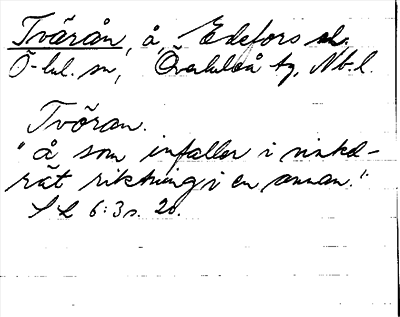 Tvärån, å, Edefors sn.
Ö-lul. sn, Överluleå tg, Nb. l.
Tvöran.
"å som infaller i vinkel-
rät riktning i en annan."
S L 6:3 s. 20.